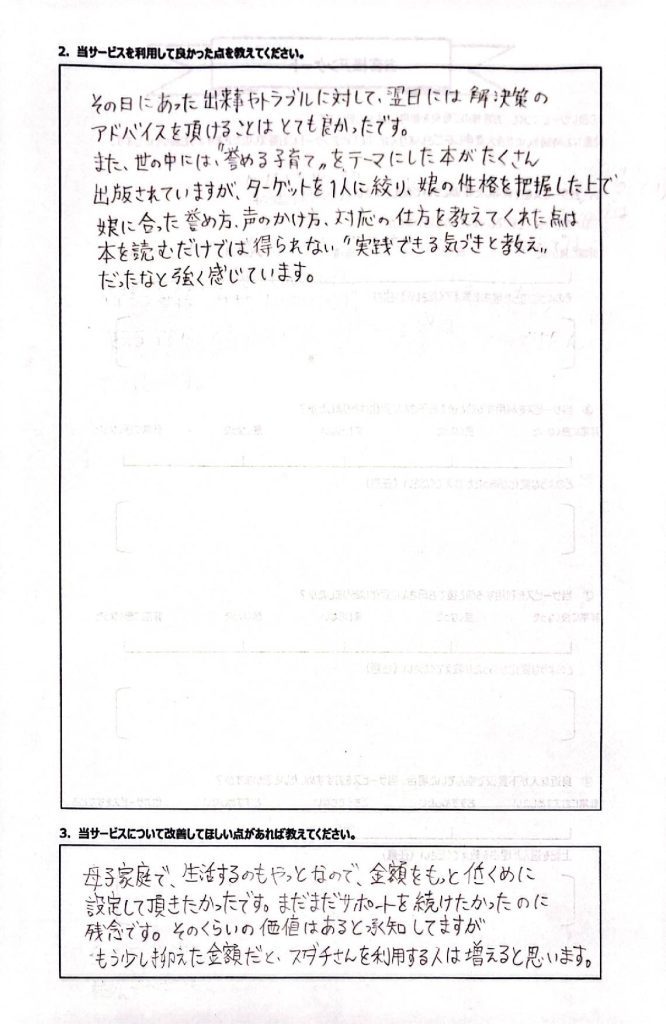 2. 当サービスを利用して良かった点を教えてください。
その日にあった出来事やトラブルに対して、翌日には解決策の
アドバイスを頂けることはとても良かったです。
また、世の中には“誉める子育て„をテーマにした本がたくさん
出版されていますが、ターゲットを1人に絞り、娘の性格を把握した上で
娘に合った誉め方、声のかけ方、対応の仕方を教えてくれた点は
本を読むだけでは得られない“実践できる気づきと教え„
だったなと強く感じています。
3. 当サービスについて改善してほしい点があれば教えてください。
母子家庭で、生活するのもやっとなので、金額をもっと低くめに
設定して頂きたかったです。まだまだサポートを続けたかったのに
残念です。そのくらいの価値はあると承知してますが
もう少し抑えた金額だと、スダチさんを利用する人は増えると思います。